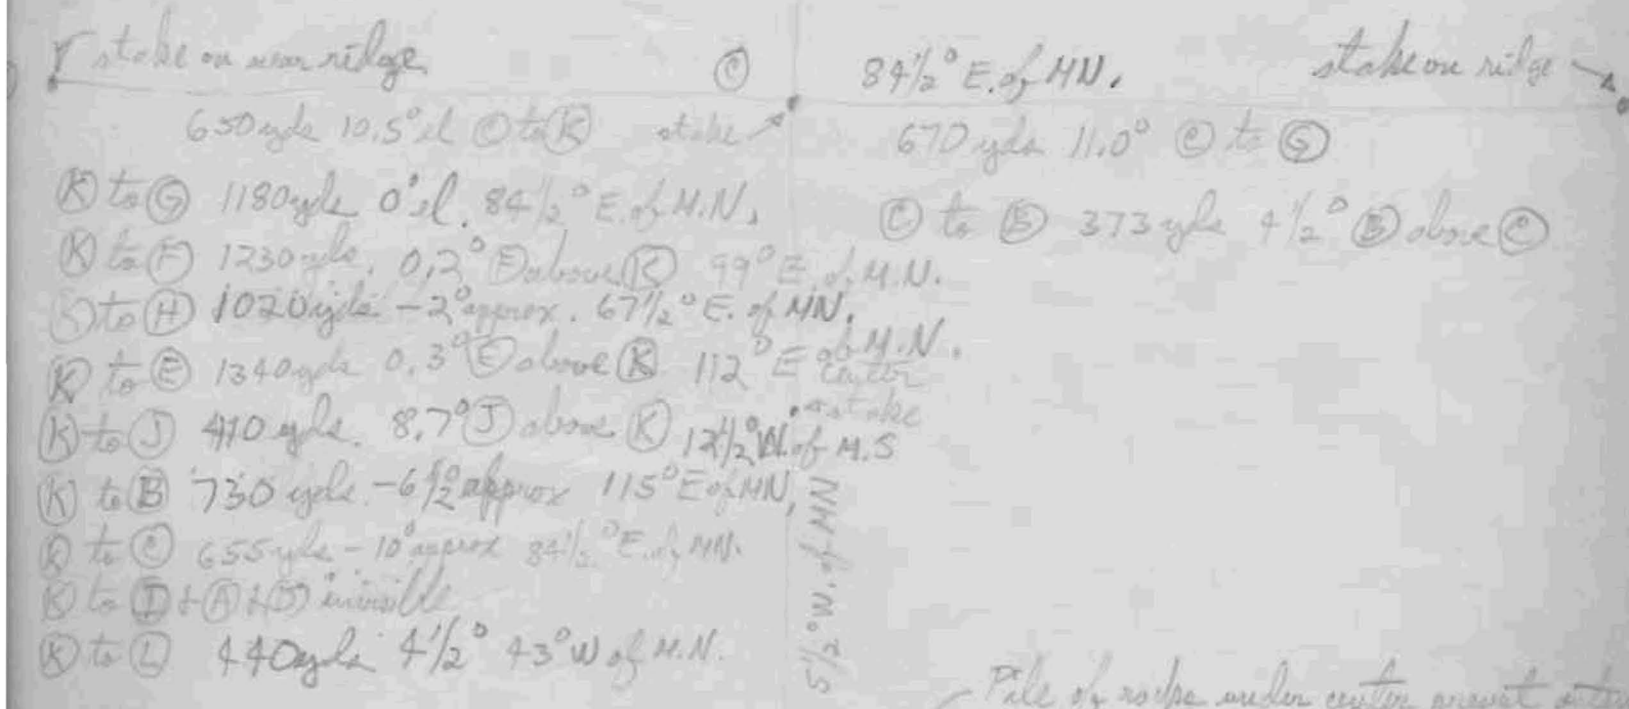 stake on near ridge
Ⓒ
84½° E. of MN.
stake on ridge
650 yds 10.5° el Ⓒ to Ⓚ
stake
670 yds 11.0° Ⓒ to Ⓖ
Ⓚ to Ⓖ 1180 yds 0° el. 84½° E. of M.N.
Ⓒ to Ⓑ 373 yds 4½° Ⓑ above Ⓒ
Ⓚ to Ⓕ 1230 yds. 0.2° Ⓕ above Ⓚ 99° E. of M.N.
to Ⓗ 1020 yds -2° approx. 67½° E. of MN.
Ⓚ to Ⓔ 1340 yds 0.3° Ⓔ above Ⓚ 112° E of M.N.
center
stake
Ⓚ to Ⓙ 410 yds. 8.7° Ⓙ above Ⓚ 12½° W. of M.S
Ⓚ to Ⓑ 730 yds. -6½° approx 115° E of MN,
Ⓚ to Ⓒ 655 yds - 10° approx 84½° E. of MN.
Ⓚ to Ⓘ + Ⓐ + Ⓓ invisible
Ⓚ to Ⓛ 440 yds 4½° 43° W of M.N.
5½° W. of MN
Pile of rocks under center